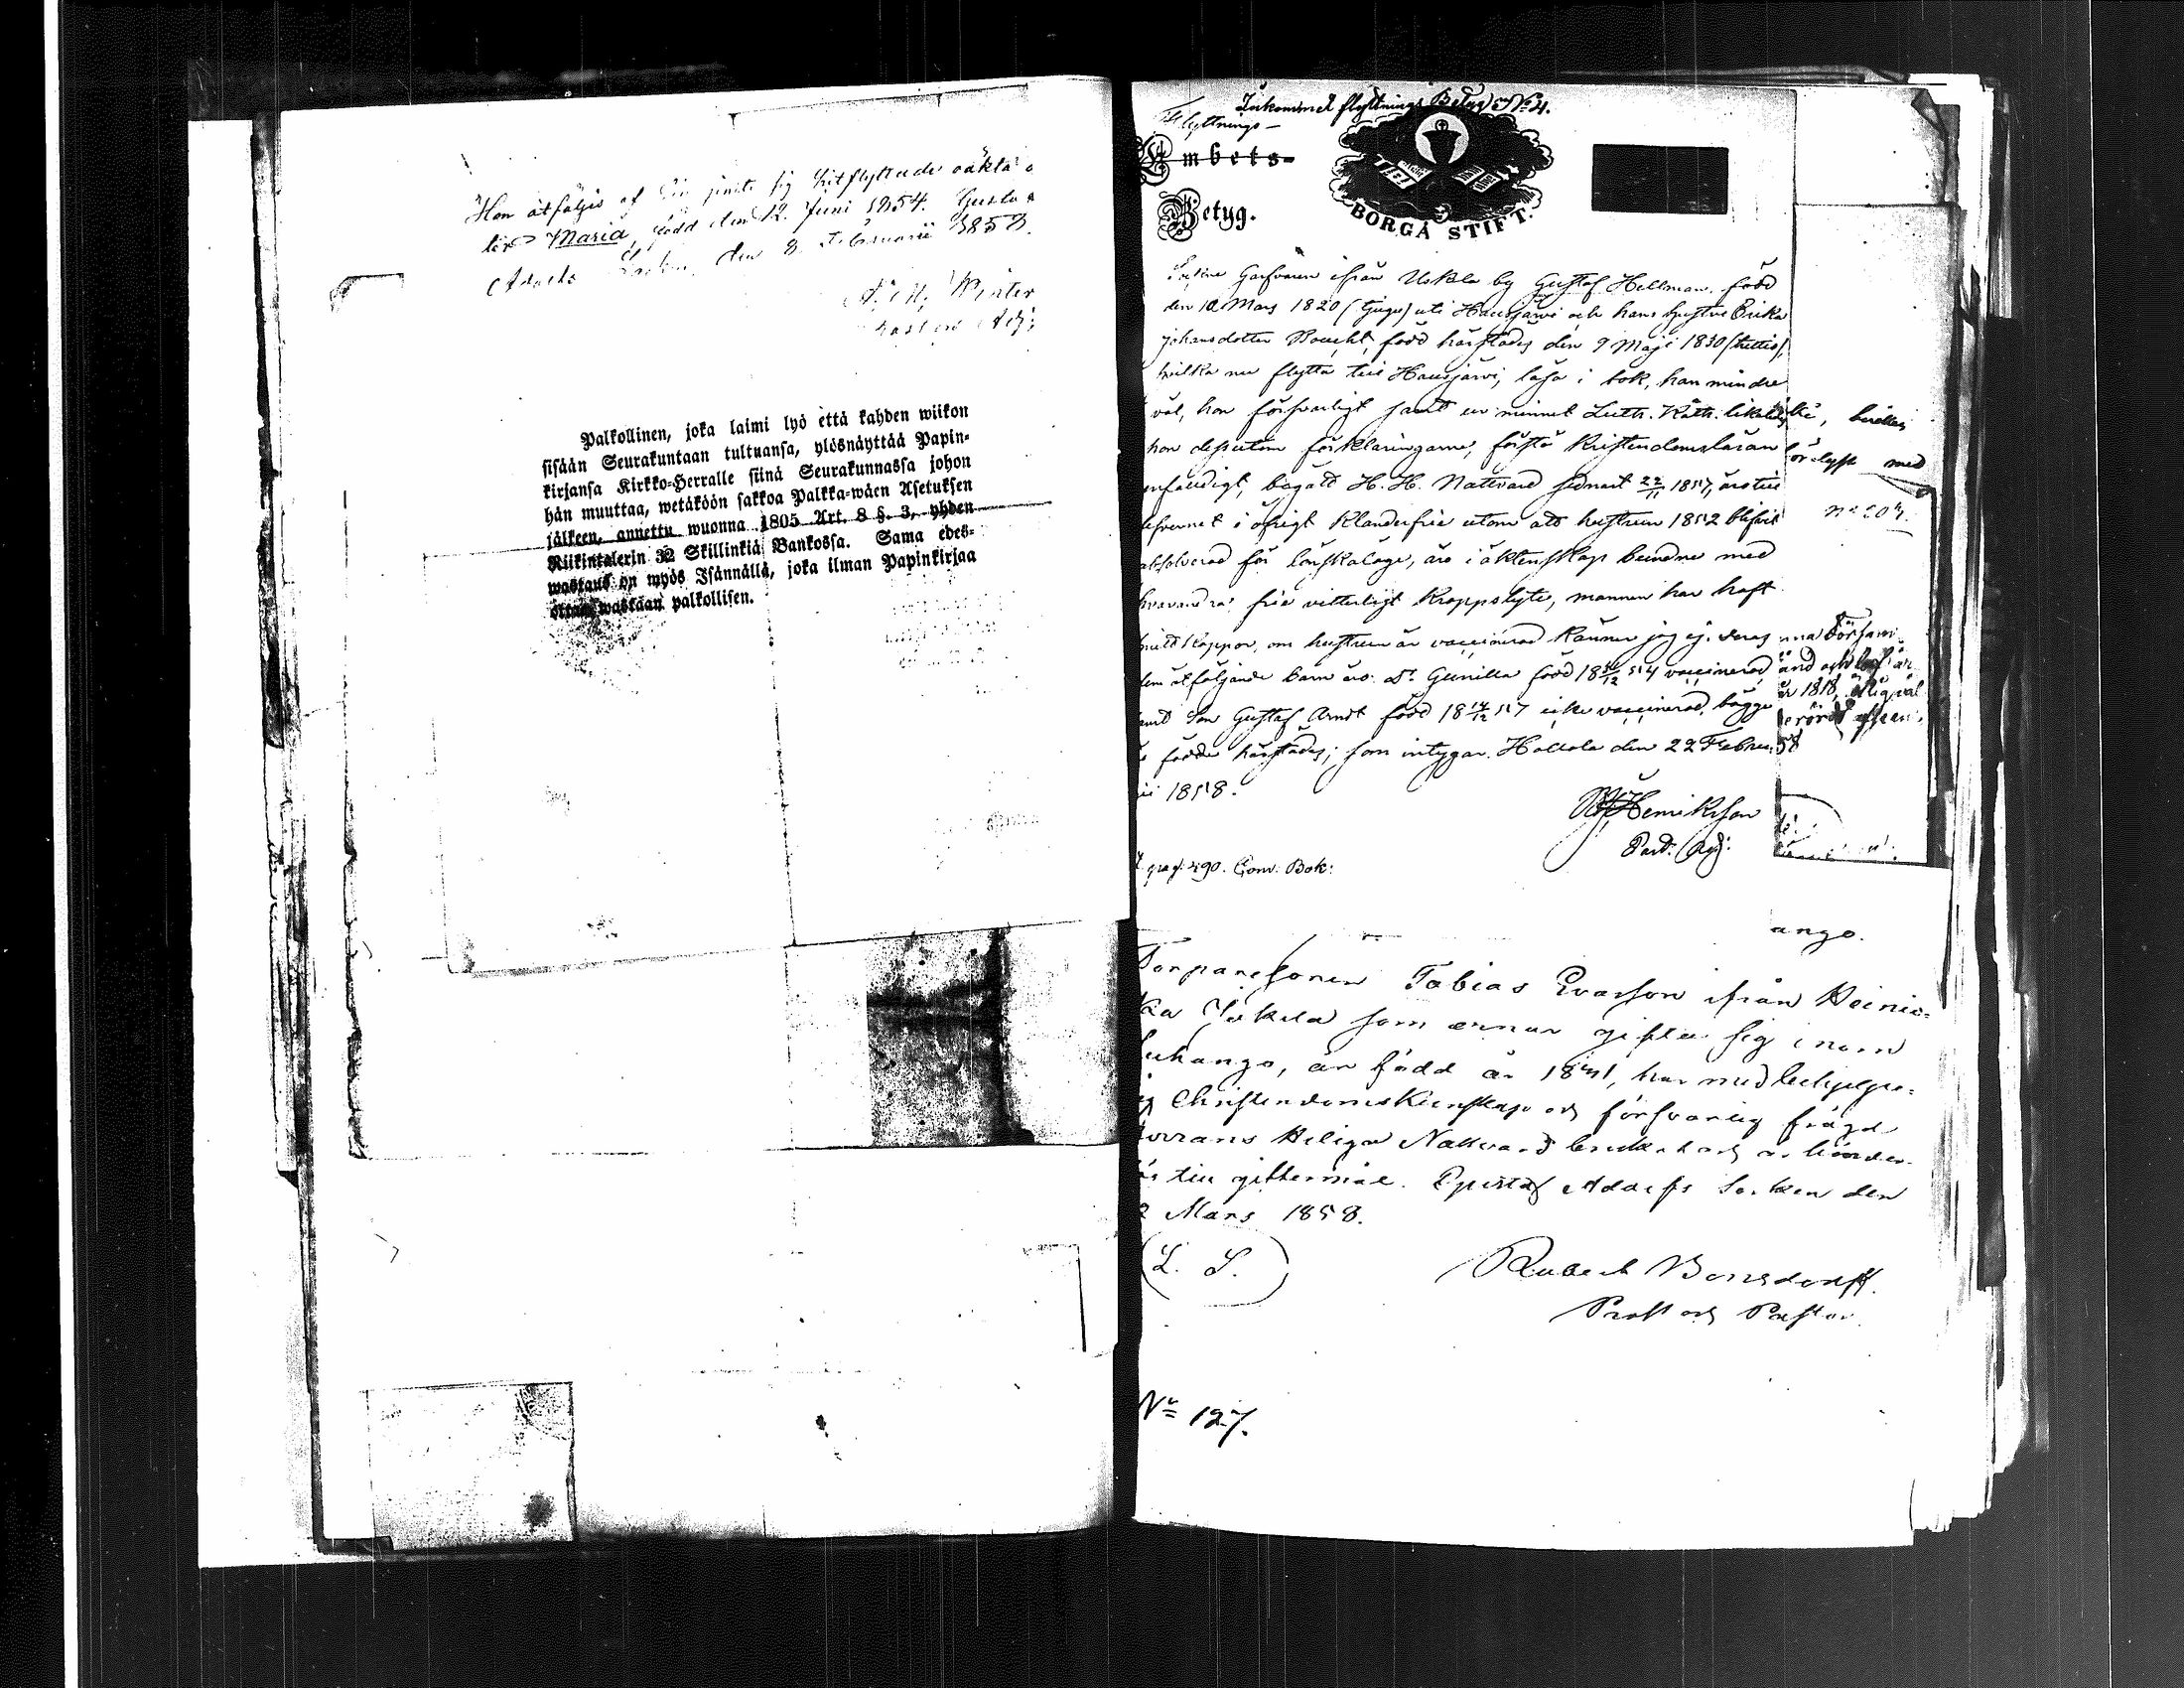 Hon åtföljes af sin jemte sig hitflyttade oäkta
Maria, född den 12 Juni 1854. Gustaf
Adolfs Socken, den 8 Februarii 1858.
Winter
Palkollinen, joka laimi lyö että kahden wiikon
sisään Seurakuntaan tultuansa, ylösnäyttää Papin-
kirjansa Kirkko-Herralle siinä Seurakunnassa johon
hän muuttaa, wetäköön sakkoa Palkka-wäen Asetuksen
jälkeen, annettu wuonna 1805 Art. 8 §. 3, yhden
Riikintalerin 32 Skillinkiä Bankossa. Sama edes-
wastaus on myös Isännällä, joka ilman Papinkirjaa
ottaa wastaan palkollisen.
Inkommet flyttnings Betyg No 4.
Flyttnings-
Embets-
Betyg.
BORGÅ STIFT.
Garfvaren ifrån Uskila by Gustaf Hellman, född
den 10 Mars 1820 (tjugu) uti Hausjärvi och hans hustru Erika
Johansdotter Boucht, född härstädes den 9 Maji 1830 (trettio),
hvilka nu flytta till Hausjärvi, läsa i bok, han mindre
väl, hon försvarligt samt ur minnet Luth. Kath. likaledes
hon dessutom förklaringarne, förstå Kristendomsläran
enfaldigt, begått H. H. Nattvard sednast 22/11 1857, äro till
lefvernet i öfrigt klanderfrie utom att hustrun 1852 blifvit
absolverad för lönskaläge, äro i äktenskap bundne med
hvarandra: frie vitterligt kroppslyte, mannen har haft
koppor, om hustrun är vaccinerad känner jag ej. Deras
dem åtföljande barn äro: Dr Gunilla född 18 /12 54 vaccinerad
samt Son Gustaf Arndt född 18 /12 57 icke vaccinerad, bägge
födde härstädes; som intygar. Hollola den 22 Februa-
rii 1858.
Henriksson
Past. Adj.
pag. 490. Com. Bok:
med
No 204.
ango.
Torparesonen Tobias Evasson ifrån Heinis-
ka Jokela som ämnar gifta sig inom
Luhango, är född år 1841, har med behjelpe-
lig Christendomskunskap och försvarlig frägd
Herrans Heliga Nattvard begått och är hinder-
lös till giftermål. Gustaf Adolfs Socken den
2 Mars 1858.
(L. S.)
Robert Bonsdorff.
Prost och Pastor.
No 127.